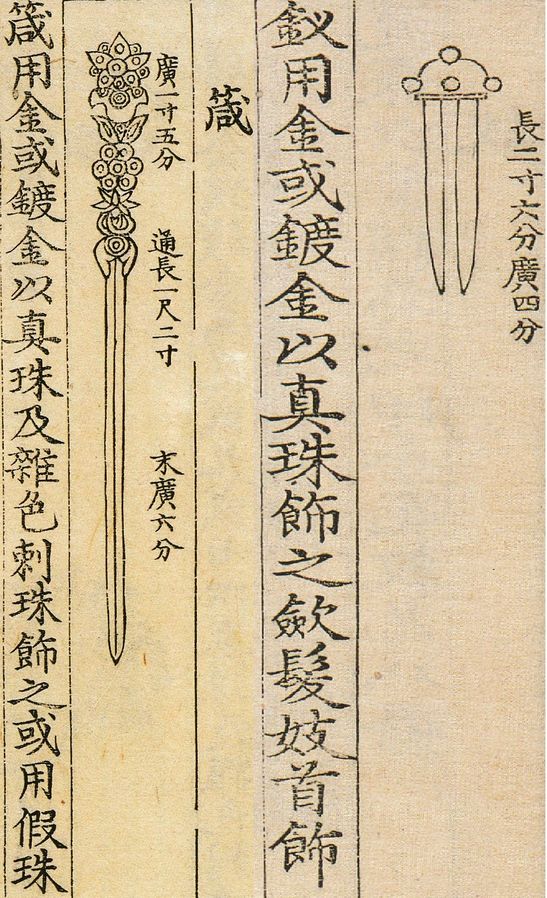 長二寸六分廣四分
釵用金或鍍金以真珠飾之歛髮妓首飾
箴
廣一寸五分
通長一尺二寸
末廣六分
箴用金或鍍金以真珠及雜色刺珠飾之或用假珠